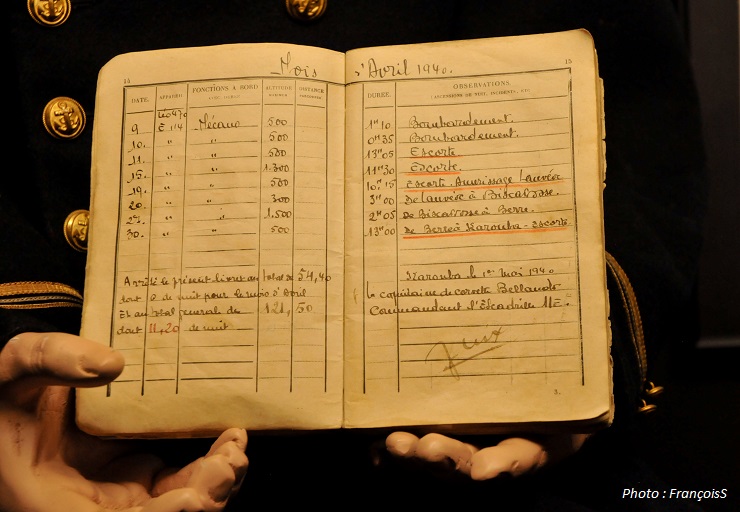 14
Mois
DATE. APPAREIL FONCTIONS A BORD ALTITUDE DISTANCE
9 E 1/4 Mécano 500
10. " " 500
11. " " 500
15. " " 1.300
19. " " 500
20. " " 300
" " 1.500
30. " " 500
Arrêté le présent livret au total de 54,40
dont 0 de nuit pour le mois d'Avril
Et au total général de 121,50
dont 11,20 de nuit
15
d'Avril 1940.
DURÉE. OBSERVATIONS
1h10 Bombardement.
0h35 Bombardement.
13h05 Escorte
11h30 Escorte.
10h15 Escorte. Amerrissage Lanvéoc
3h00 de Lanvéoc à Biscarosse.
2h05 de Biscarosse à Berre.
13h00 de Berre à Karouba - escorte.
Karouba le 1er mai 1940
Le capitaine de corvette
Commandant l'Escadrille
Photo : FrançoisS